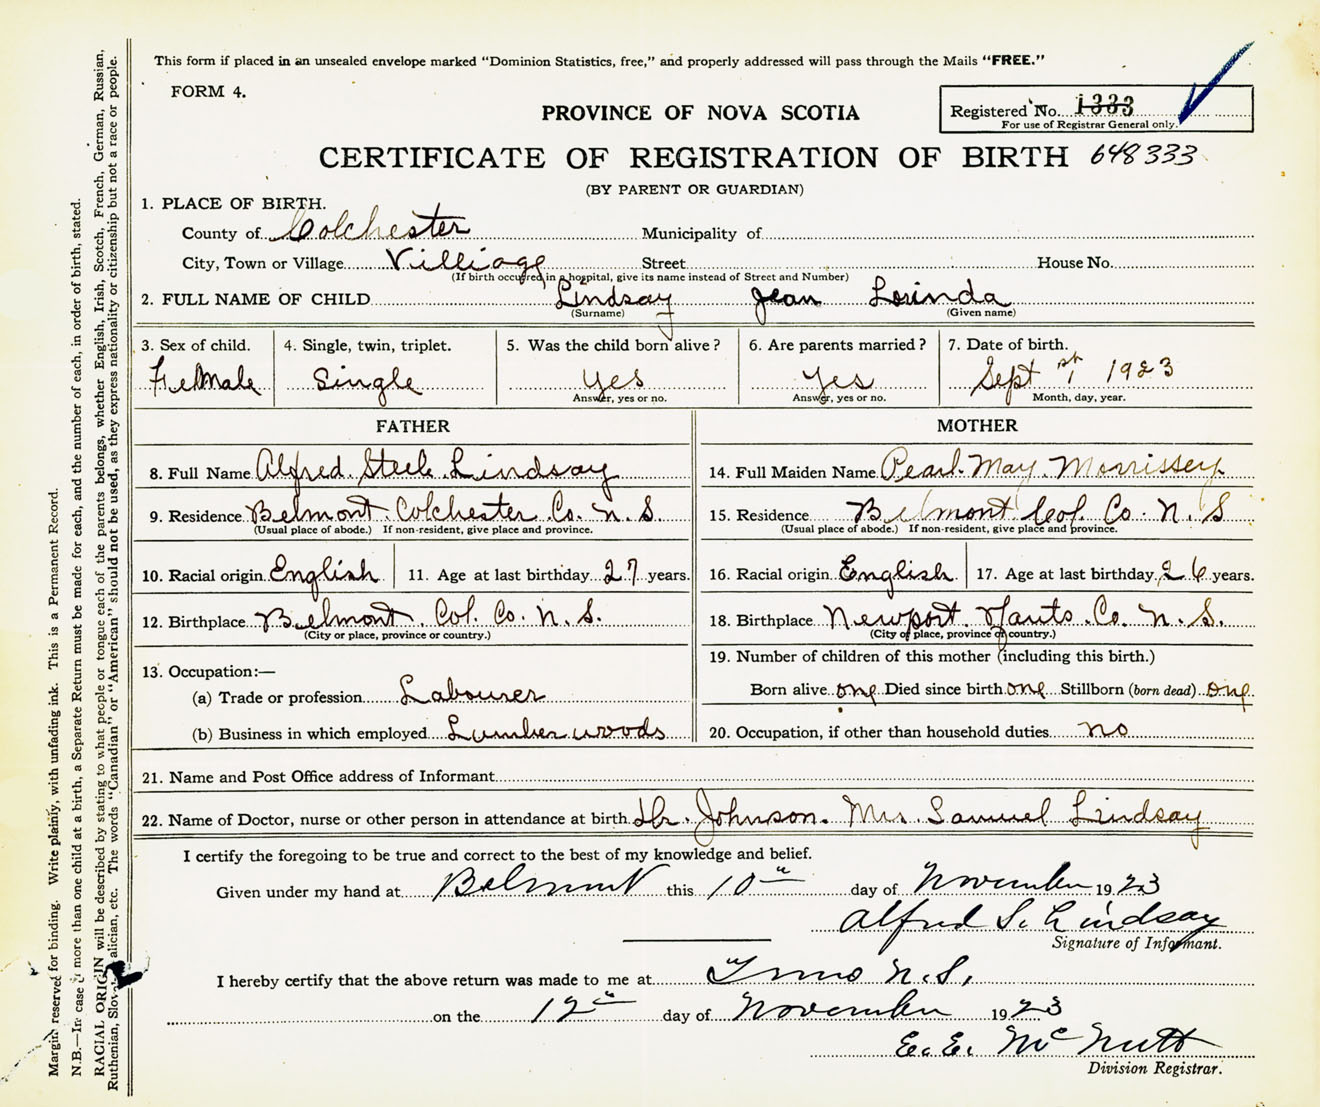 This form if placed in an unsealed envelope marked "Dominion Statistics, free," and properly addressed will pass through the Mails "FREE."
FORM 4.
PROVINCE OF NOVA SCOTIA
Registered No. 1333
For use of Registrar General only.
CERTIFICATE OF REGISTRATION OF BIRTH 648333
(BY PARENT OR GUARDIAN)
1. PLACE OF BIRTH.
County of Colchester Municipality of
City, Town or Village Villiage Street House No.
(If birth occurred in a hospital, give its name instead of Street and Number)
2. FULL NAME OF CHILD Lindsay Jean Lorinda
(Surname) (Given name)
3. Sex of child. 4. Single, twin, triplet. 5. Was the child born alive? 6. Are parents married? 7. Date of birth.
Female Single Yes Yes Sept 1st 1923
Answer, yes or no. Answer, yes or no. Month, day, year.
FATHER MOTHER
8. Full Name Alfred Steele Lindsay 14. Full Maiden Name Pearl May Morrissey
9. Residence Belmont Colchester Co. N. S. 15. Residence Belmont Col. Co. N. S
(Usual place of abode.) If non-resident, give place and province. (Usual place of abode.) If non-resident, give place and province.
10. Racial origin English 11. Age at last birthday 27 years. 16. Racial origin English 17. Age at last birthday 26 years.
12. Birthplace Belmont Col. Co. N. S. 18. Birthplace Newport Hants Co. N. S.
(City or place, province or country.) (City or place, province or country.)
13. Occupation:— 19. Number of children of this mother (including this birth.)
(a) Trade or profession Labourer Born alive one Died since birth one Stillborn (born dead) one
(b) Business in which employed Lumber woods 20. Occupation, if other than household duties no
21. Name and Post Office address of Informant
22. Name of Doctor, nurse or other person in attendance at birth Dr. Johnson. Mrs Samuel Lindsay
I certify the foregoing to be true and correct to the best of my knowledge and belief.
Given under my hand at Belmont this 10th day of November 1923
Alfred S. Lindsay
Signature of Informant.
I hereby certify that the above return was made to me at Truro N.S.,
on the 12th day of November 1923
E. E. McNutt
Division Registrar.
Margin reserved for binding. Write plainly, with unfading ink. This is a Permanent Record.
N.B.—In case of more than one child at a birth, a Separate Return must be made for each, and the number of each, in order of birth, stated.
RACIAL ORIGIN will be described by stating to what people or tongue each of the parents belongs, whether English, Irish, Scotch, French, German, Russian,
Ruthenian, Slov alician, etc. The words "Canadian" or "American" should not be used, as they express nationality or citizenship but not a race or people.